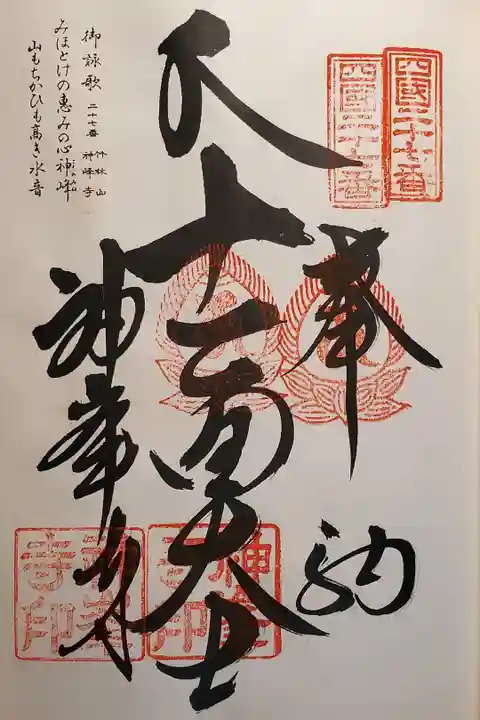 四國二十七番
四國二十七番
奉納
十一面大士
神峯寺
神峯寺印
神峯寺印
御詠歌 二十七番 竹林山 神峰寺
みほとけの恵みの心神峰
山もちかひも高き水音